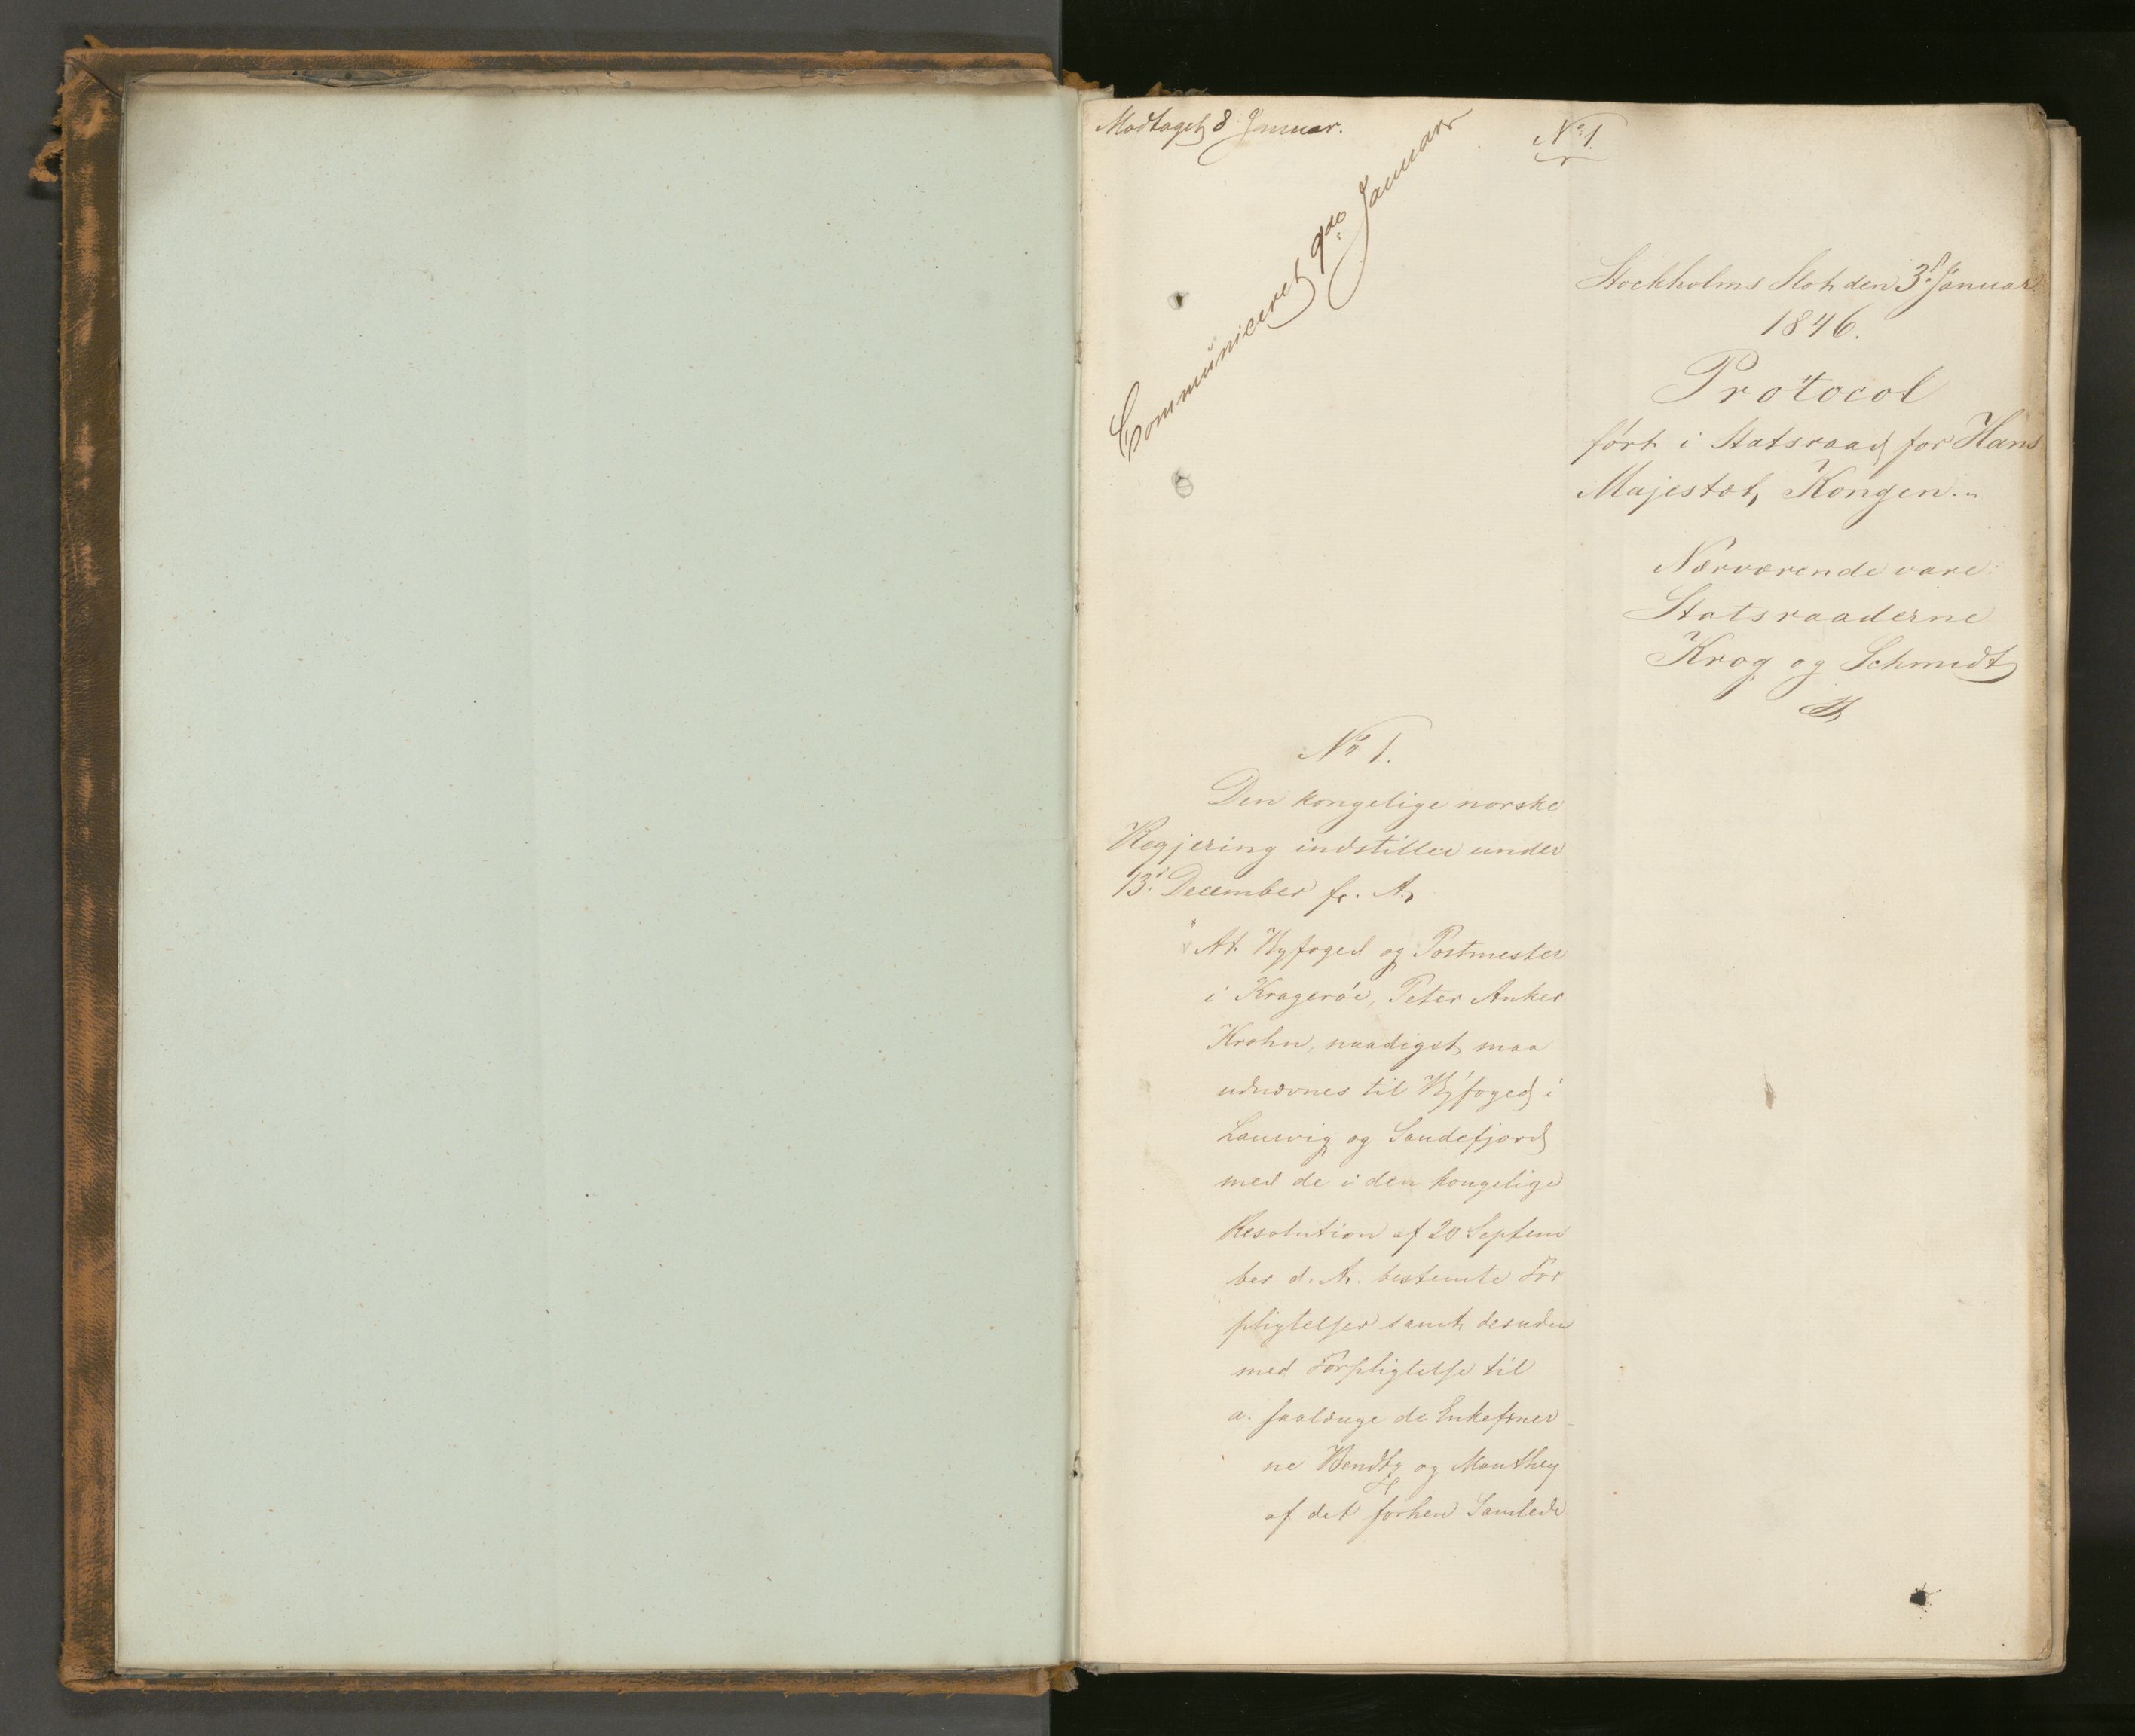 Modtaget 8 Januar.
Communiceret 9de Januar
No 1.
Stockholms Slot den 3die Januar
1846.
Protocol
ført i Statsraad for Hans
Majestæt Kongen.
Nærværende vare:
Statsraaderne
Krog og Schmidt
No 1.
Den kongelige norske
Regjering indstiller under
13de December f. A.
"At Byfoged og Postmester
i Kragerøe, Peter Anker
Krohn, naadigst maa
udnævnes til Byfoged i
Laurvig og Sandefjord
med de i den kongelige
Resolution af 20 Septem
ber d. A. bestemte For
pligtelser samt desuden
med Forpligtelse til
a. saalænge de Enkefruer
ne Bendtz og Manthey
af det forhen Samlede